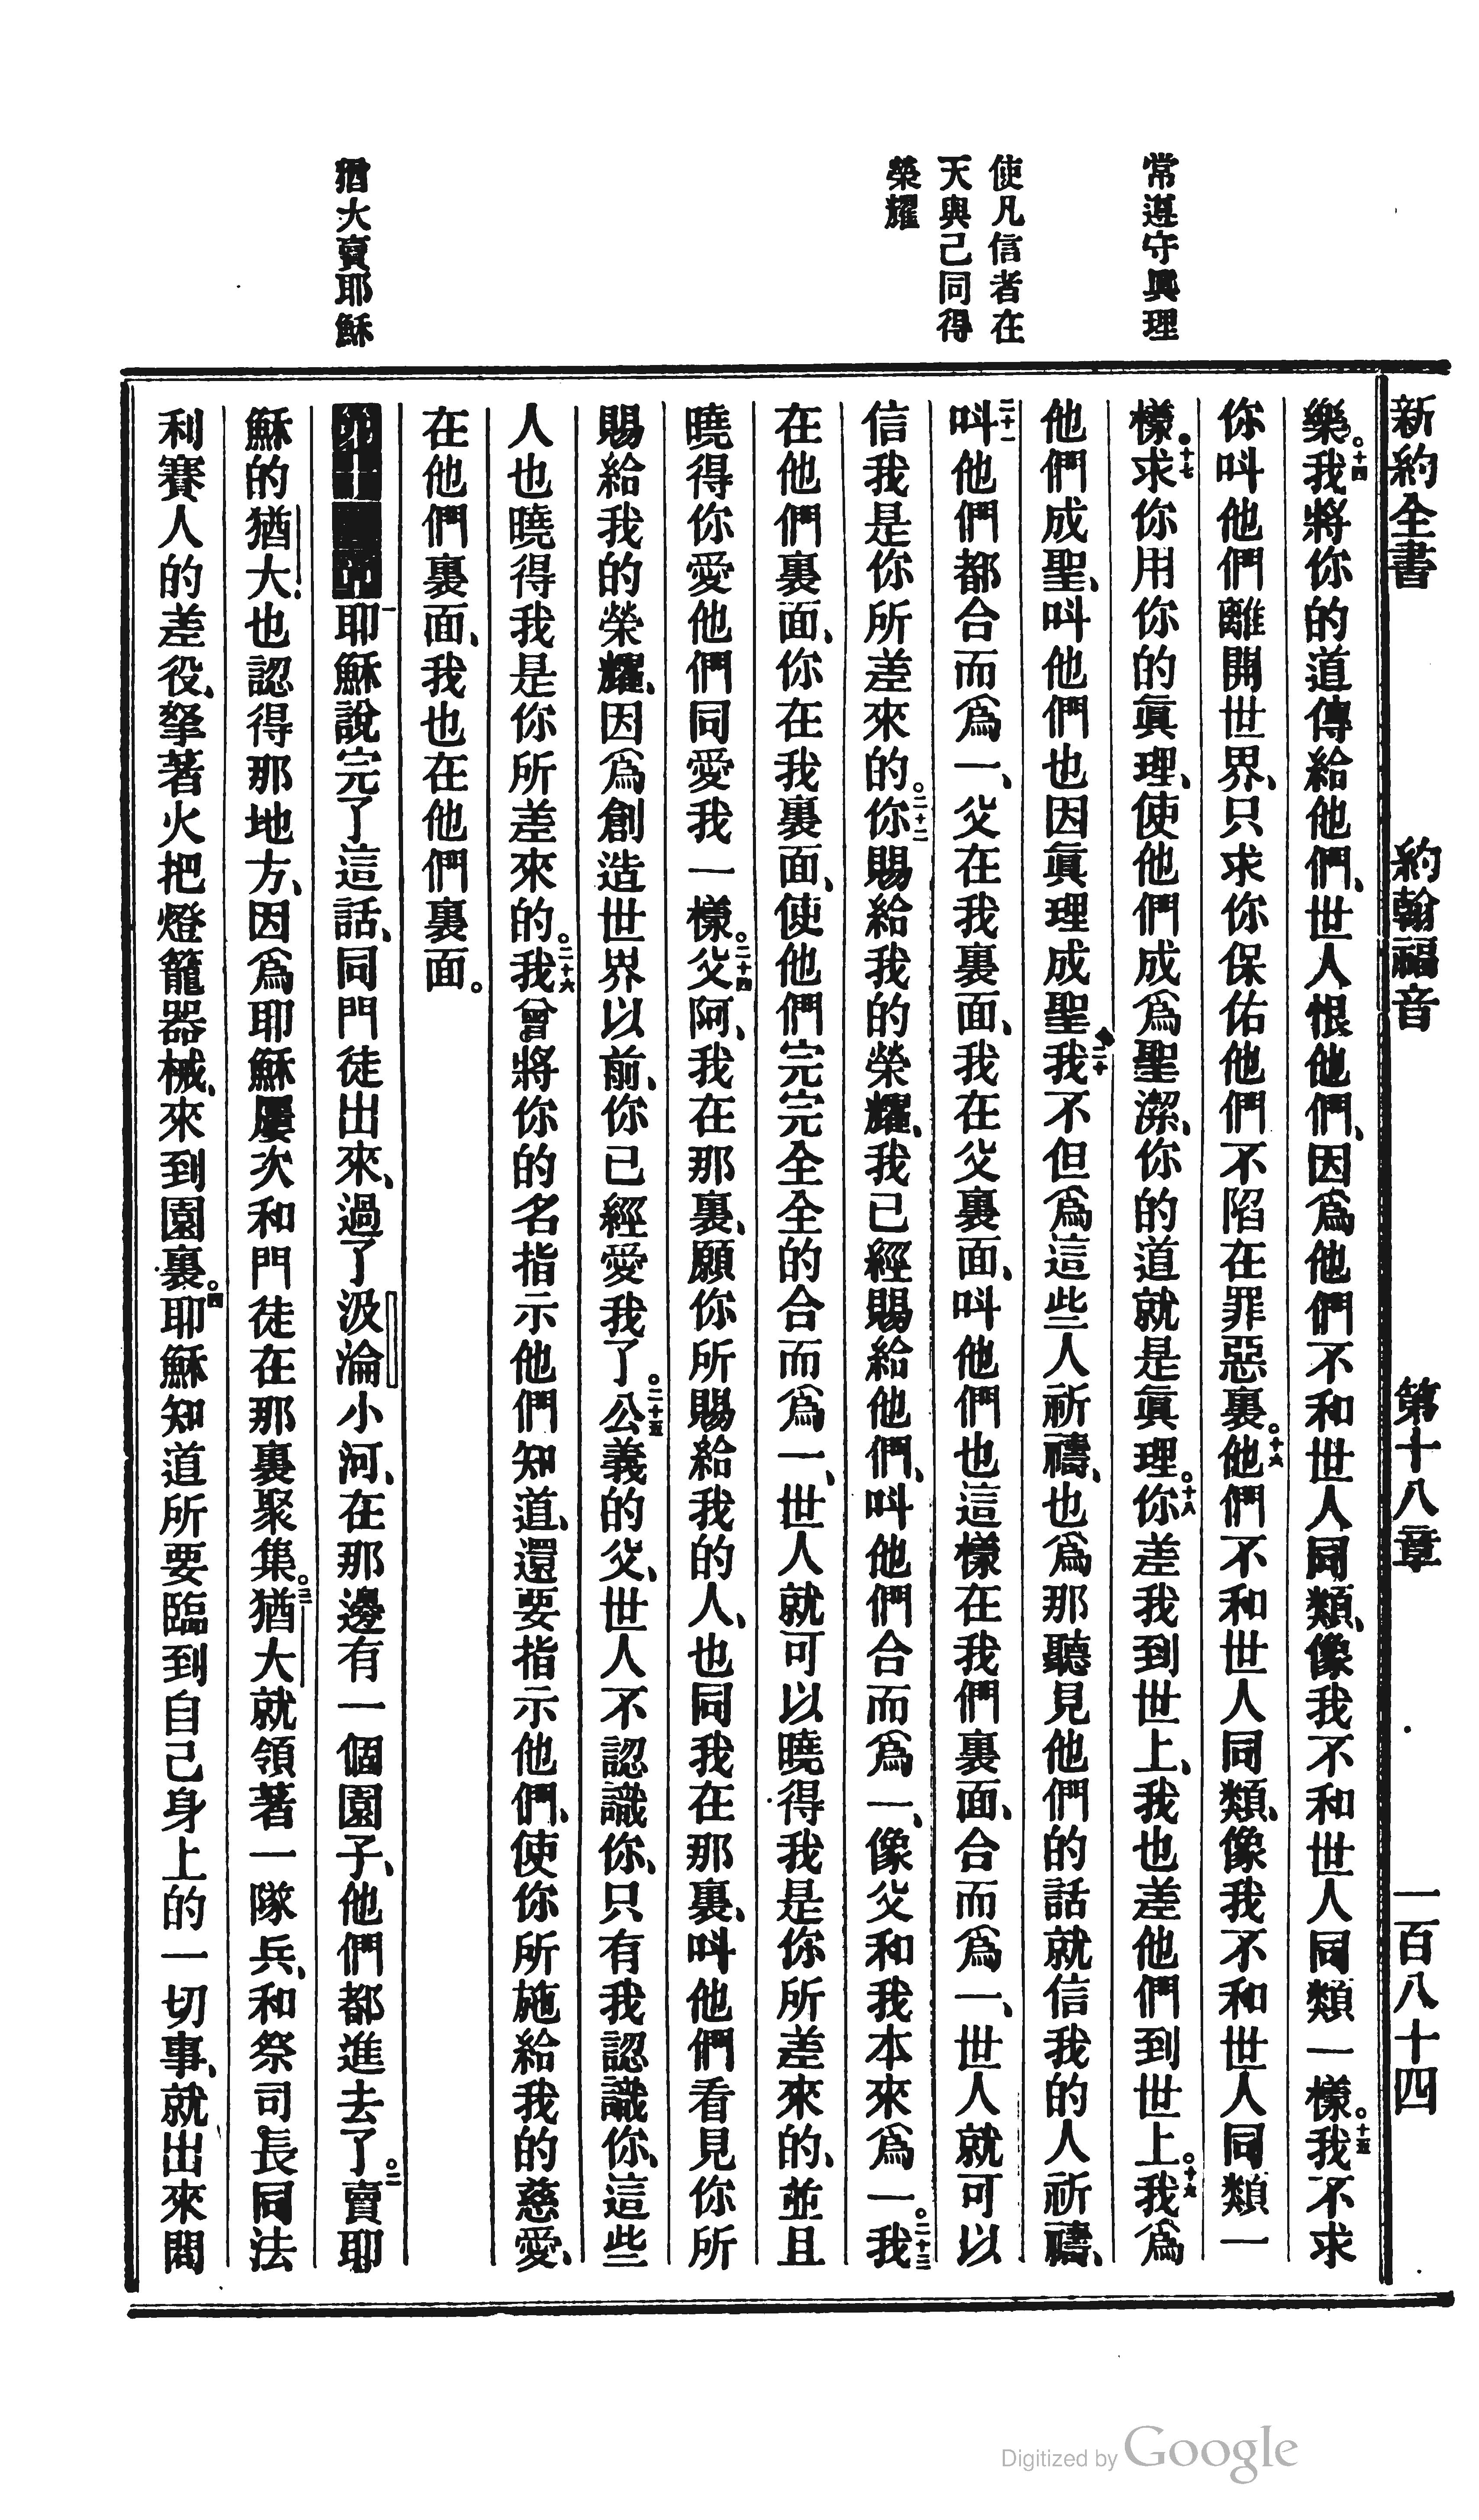 新約全書 約翰福音 第十八章 一百八十四
常遵守眞理
使凡信者在
天與己同得
榮耀
猶大賣耶穌
樂。十四我將你的道傳給他們、世人恨他們、因爲他們不和世人同類、像我不和世人同類一樣。十五我不求
你叫他們離開世界、只求你保佑他們不陷在罪惡裏。十六他們不和世人同類、像我不和世人同類一
樣。十七求你用你的眞理、使他們成爲聖潔、你的道就是眞理。十八你差我到世上、我也差他們到世上。十九我爲
他們成聖、叫他們也因眞理成聖。二十我不但爲這些人祈禱、也爲那聽見他們的話就信我的人祈禱、
二十一叫他們都合而爲一、父在我裏面、我在父裏面、叫他們也這樣在我們裏面、合而爲一、世人就可以
信我是你所差來的。二十二你賜給我的榮耀、我已經賜給他們、叫他們合而爲一、像父和我本來爲一。二十三我
在他們裏面、你在我裏面、使他們完完全全的合而爲一、世人就可以曉得我是你所差來的、並且
曉得你愛他們同愛我一樣。二十四父阿、我在那裏、願你所賜給我的人、也同我在那裏、叫他們看見你所
賜給我的榮耀、因爲創造世界以前、你已經愛我了。二十五公義的父、世人不認識你、只有我認識你、這些
人也曉得我是你所差來的。二十六我曾將你的名指示他們知道、還要指示他們、使你所施給我的慈愛、
在他們裏面、我也在他們裏面。
一耶穌說完了這話、同門徒出來、過了汲淪小河、在那邊有一個園子、他們都進去了。二賣耶
穌的猶大、也認得那地方、因爲耶穌屢次和門徒在那裏聚集。三猶大就領著一隊兵、和祭司長同法
利賽人的差役、拏著火把燈籠器械、來到園裏。四耶穌知道所要臨到自己身上的一切事、就出來問
Digitized by Google